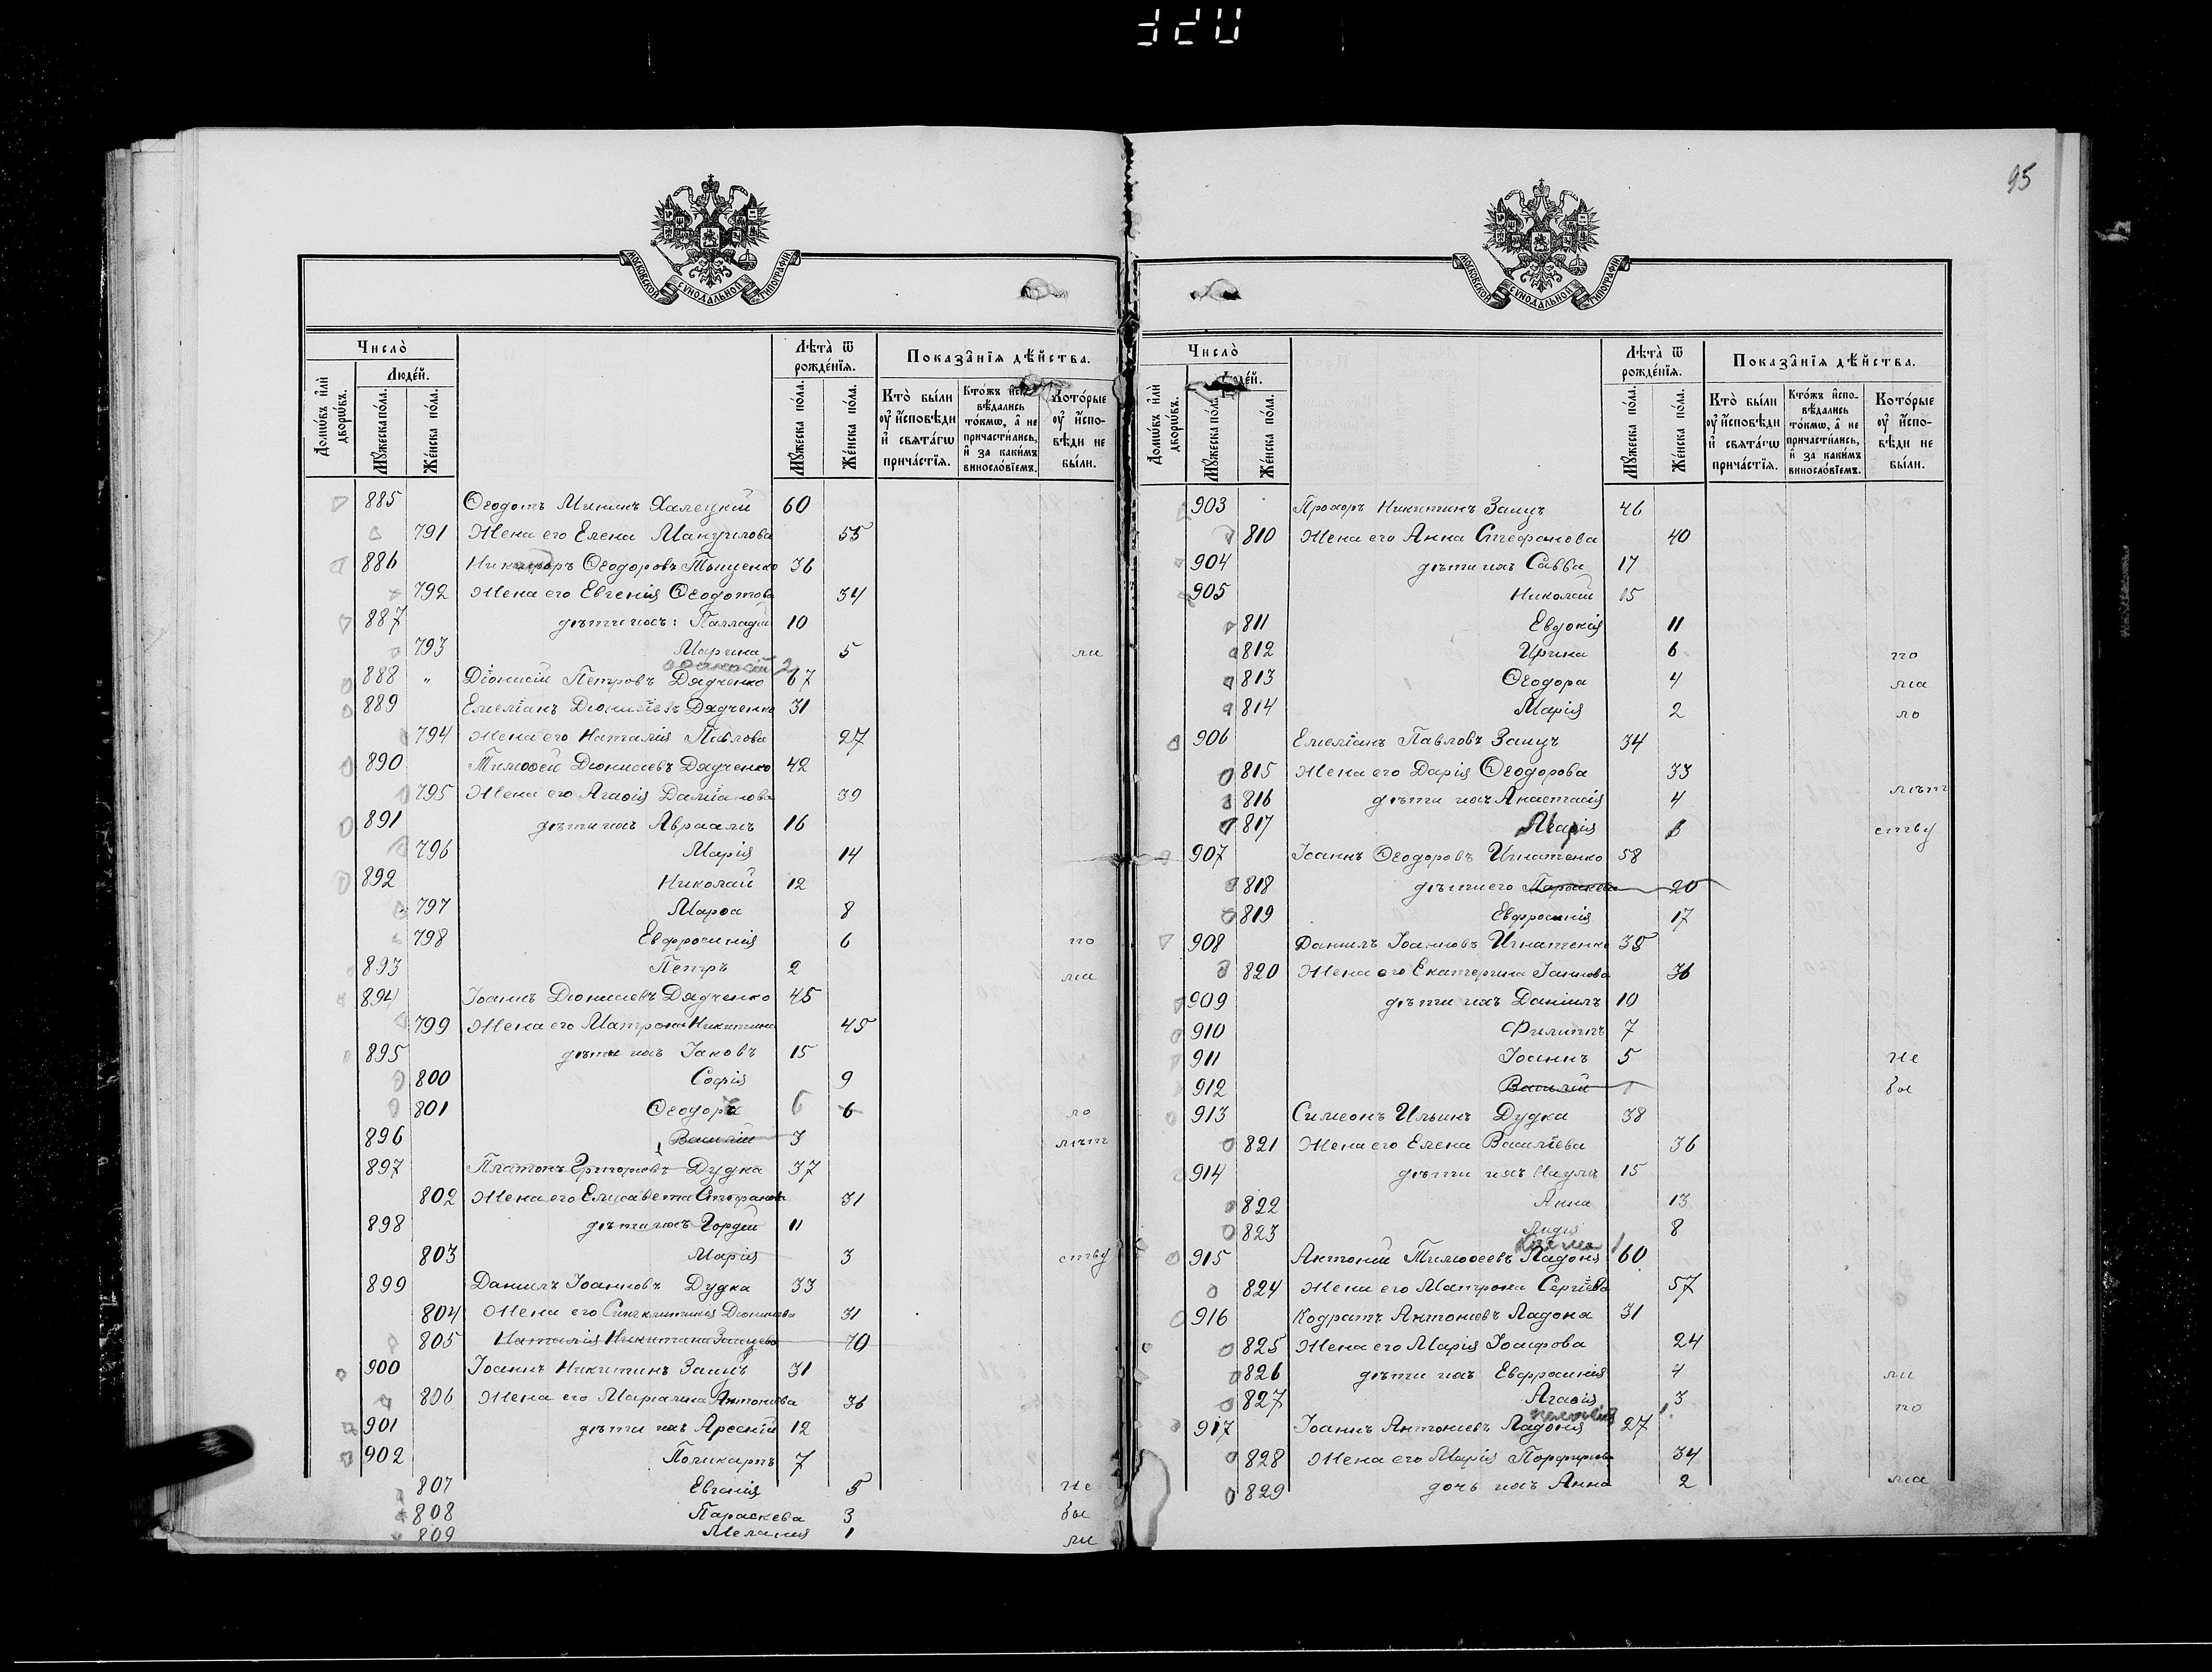 95
МОСКОВСКОЙ СѴНОДАЛЬНОЙ ТИПОГРАФІИ
Число̀
Люде́й.
Домѡ́въ и҆лѝ дворѡ́въ.
Мꙋ́жеска по́ла.
Же́нска по́ла.
Лѣ́та ѿ рожде́нїѧ.
Мꙋ́жеска по́ла.
Же́нска по́ла.
Показа̂нїѧ дѣ́йства.
Кто̀ бы́ли ᲂу҆ и҆́сповѣди и҆ свѧта́гѡ прича́стїѧ.
Кто́жъ и҆сповѣ́дались то́кмѡ, а҆ не причасти́лись, и҆ за каки́мъ винослові́емъ.
Кото́рые ᲂу҆ и҆́сповѣди не бы́ли.
885 Ѳеодотъ Мининъ Халецкій 60
791 Жена его Елена Мануилова 55
886 Никифоръ Ѳеодоровъ Тыщенко 36
792 Жена его Евгенія Ѳеодотова 34
887 дѣти ихъ: Палладій 10
793 Марина 5 ли
888 " Діонисій Петровъ Дядченко 67
889 Емеліанъ Діонисіевъ Дядченко 31
794 Жена его Наталія Павлова 27
890 Тимоѳей Діонисіевъ Дядченко 42
795 Жена его Агаѳія Даміанова 39
891 дѣти ихъ Авраамъ 16
796 Марія 14
892 Николай 12
797 Марѳа 8
798 Евфросинія 6 по
893 Петръ 2 ма
894 Іоаннъ Діонисіевъ Дядченко 45
799 Жена его Матрона Никитина 45
895 дѣти ихъ Іаковъ 15
800 Софія 9
801 Ѳеодоръ 6 6 ло
896 Василій 3 лѣт
897 Платонъ Григоріевъ Дудка 37
802 Жена его Елисавета Стефанова 31
898 дѣти ихъ Гордій 11
803 Марія 3 ству
899 Даніилъ Іоанновъ Дудка 33
804 Жена его Синклитикія Діонисіева 31
805 Наталія Никитина Заицева 70
900 Іоаннъ Никитинъ Заицъ 31
806 Жена его Маріамна Антоніева 36
901 дѣти ихъ Арсеній 12
902 Поликарпъ 7
807 Евгенія 5 не
808 Параскева 3 бы
809 Меланія 1 ли
МОСКОВСКОЙ СѴНОДАЛЬНОЙ ТИПОГРАФІИ
Число̀
Люде́й.
Домѡ́въ и҆лѝ дворѡ́въ.
Мꙋ́жеска по́ла.
Же́нска по́ла.
Лѣ́та ѿ рожде́нїѧ.
Мꙋ́жеска по́ла.
Же́нска по́ла.
Показа̂нїѧ дѣ́йства.
Кто̀ бы́ли ᲂу҆ и҆́сповѣди и҆ свѧта́гѡ прича́стїѧ.
Кто́жъ и҆сповѣ́дались то́кмѡ, а҆ не причасти́лись, и҆ за каки́мъ винослові́емъ.
Кото́рые ᲂу҆ и҆́сповѣди не бы́ли.
903 Прохоръ Никитинъ Заицъ 46
810 Жена его Анна Стефанова 40
904 дѣти ихъ Савва 17
905 Николай 15
811 Евдокія 11
812 Ирина 6 по
813 Ѳеодора 4 ма
814 Марія 2 ло
906 Емеліанъ Павловъ Заицъ 34
815 Жена его Дарія Ѳеодорова 33
816 дѣти ихъ Анастасія 4 лѣт
817 Марія ству
907 Іоаннъ Ѳеодоровъ Игнатенко 58
818 дѣти его Параскева 20
819 Евфросинія 17
908 Даніилъ Іоанновъ Игнатенко 35
820 Жена его Екатерина Іаннова 36
909 дѣти ихъ Даніилъ 10
910 Филиппъ 7
911 Іоаннъ 5 не
912 Василій бы
913 Симеонъ Ильинъ Дудка 38
821 Жена его Елена Василіева 36
914 дѣти ихъ Наумъ 15
822 Анна 13
823 Лидія 8
915 Антоній Тимоѳеевъ Ладоня 60
824 Жена его Матрона Сергіева 57
916 Кодратъ Антоніевъ Ладоня 31
825 Жена его Марія Іосифова 24
826 дѣти ихъ Евфросинія 4 ли
827 Агаѳія 3 по
917 Іоаннъ Антоніевъ Ладоня 27
828 Жена его Марія Порфирова 34
829 дочь ихъ Анна 2 ма